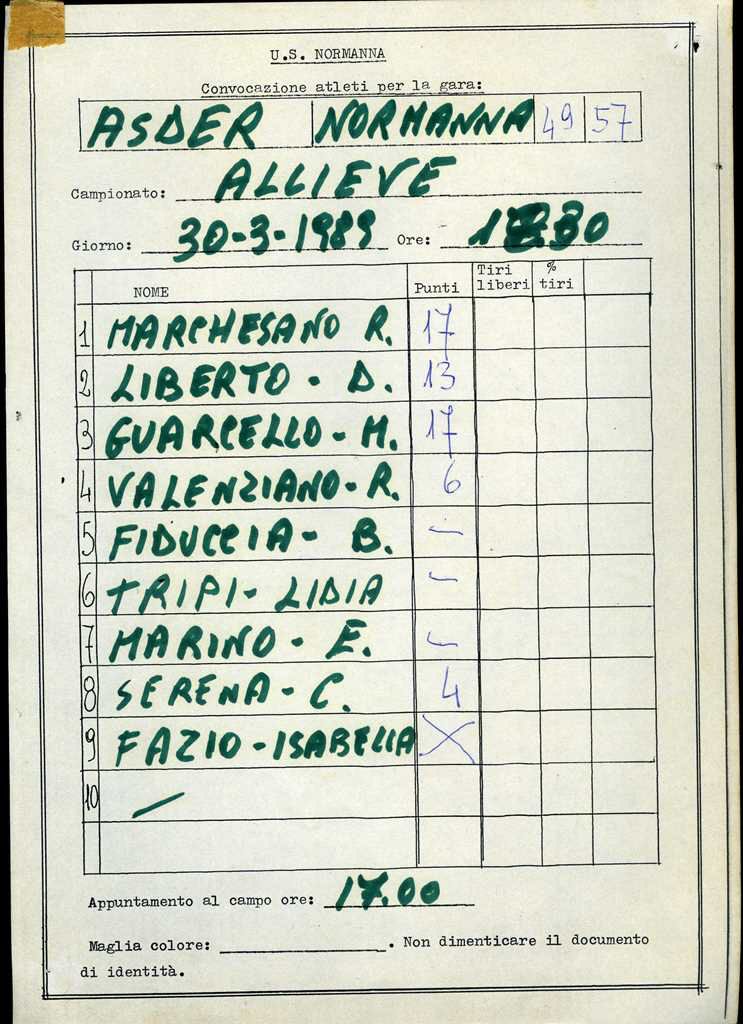 U.S. NORMANNA
Convocazione atleti per la gara:
ASDER NORMANNA 49 57
Campionato: ALLIEVE
Giorno: 30-3-1989 Ore:
NOME Punti Tiri liberi % tiri
1 MARCHESANO R. 17
2 LIBERTO - D. 13
3 GUARCELLO - M. 17
4 VALENZIANO - R. 6
5 FIDUCCIA - B. -
6 TRIPI - LIDIA -
7 MARINO - E. -
8 SERENA - C. 4
9 FAZIO - ISABELLA X
10 -
Appuntamento al campo ore: 17.00
Maglia colore: . Non dimenticare il documento
di identità.